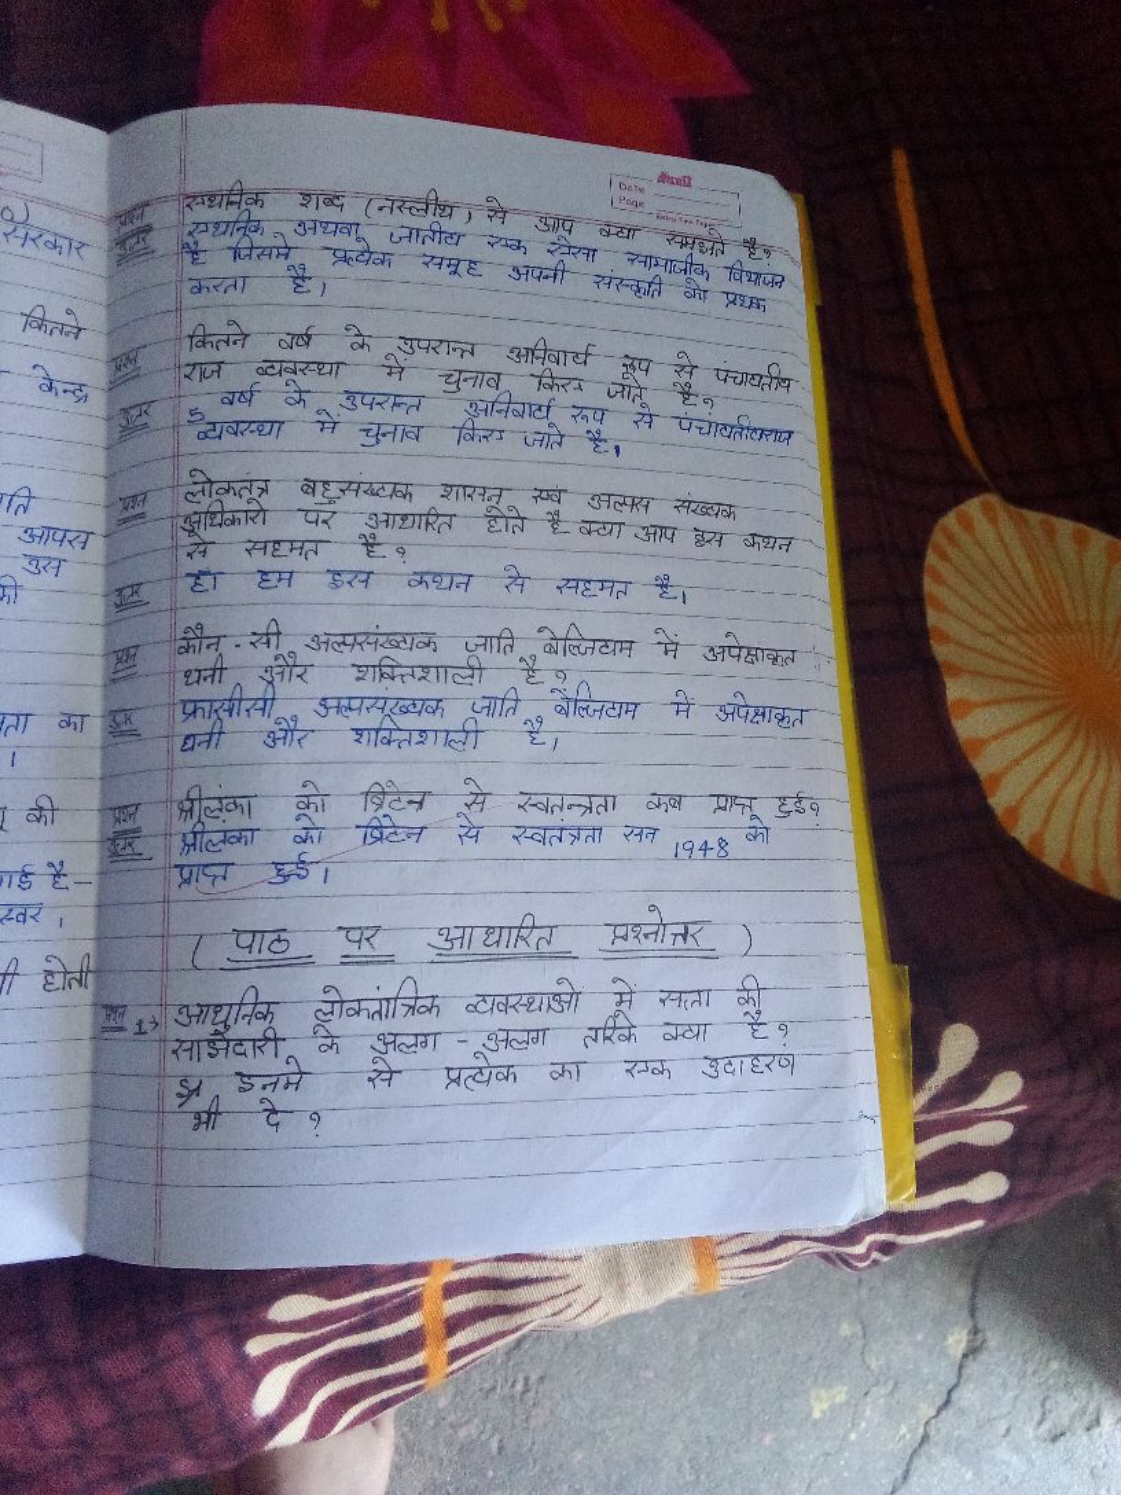 ०)
सरकार
कितने
केन्द्र
आपस
उस
का
।
की
गई है-
स्वर ।
होती
Date
Page
प्रश्न स्थानिक शब्द (नस्लीय) से आप क्या समझते है?
उत्तर स्थानिक अथवा जातीय एक ऐसा सामाजीक विभाजन
है जिसमे प्रत्येक समूह अपनी संस्कृति को प्रथक
करता है।
प्रश्न कितने वर्ष के उपरान्त अनिवार्य रूप से पंचायतीय
राज व्यवस्था में चुनाव किए जाते है?
उत्तर 5 वर्ष के उपरान्त अनिवार्य रूप से पंचायतीयराज
व्यवस्था में चुनाव किए जाते है।
प्रश्न लोकतंत्र बहुसंख्यक शासन एवं अल्पस संख्यक
अधिकारो पर आधारित होते है क्या आप इस कथन
से सहमत है?
उत्तर हां हम इस कथन से सहमत है।
प्रश्न कौन-सी अल्पसंख्यक जाति बेल्जियम में अपेक्षाकृत
धनी और शक्तिशाली है?
उत्तर फ्रासीसी अल्पसंख्यक जाति बेल्जियम में अपेक्षाकृत
धनी और शक्तिशाली है।
प्रश्न श्रीलंका को ब्रिटेन से स्वतन्त्रता कब प्राप्त हुई?
उत्तर श्रीलंका को ब्रिटेन से स्वतंत्रता सन 1948 को
प्राप्त हुई।
( पाठ पर आधारित प्रश्नोत्तर )
प्रश्न 1→ आधुनिक लोकतांत्रिक व्यवस्थाओ में सत्ता की
साझेदारी के अलग-अलग तरिके क्या है?
इनमे से प्रत्येक का एक उदाहरण
भी दे?